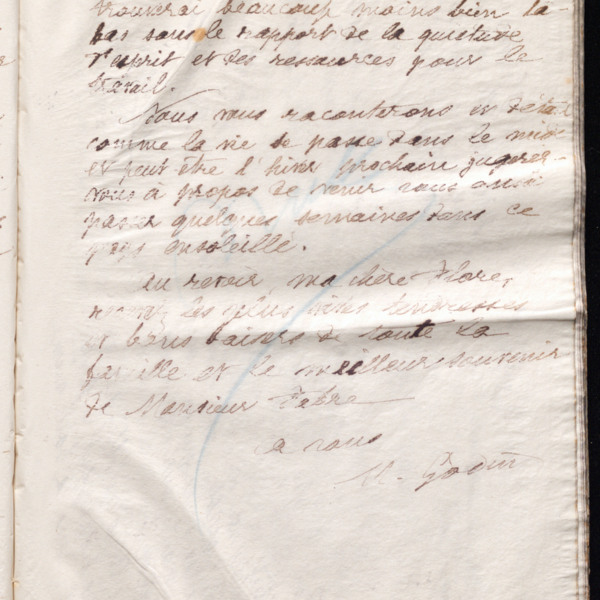 trouverai beaucoup moins bien là-
bas sous le rapport de la quiétude
d'esprit et des ressources pour le
travail.
Nous vous raconterons en détail
comme la vie se passe dans le midi
et peut être l'hiver prochain jugerez-
vous à propos de venir vous aussi
passer quelques semaines dans ce
pays ensoleillé.
Au revoir, ma chère Flore,
recevez les plus vives tendresses
et bons baisers de toute la
famille et le meilleur souvenir
de Monsieur Fabre
à vous
M. Godin